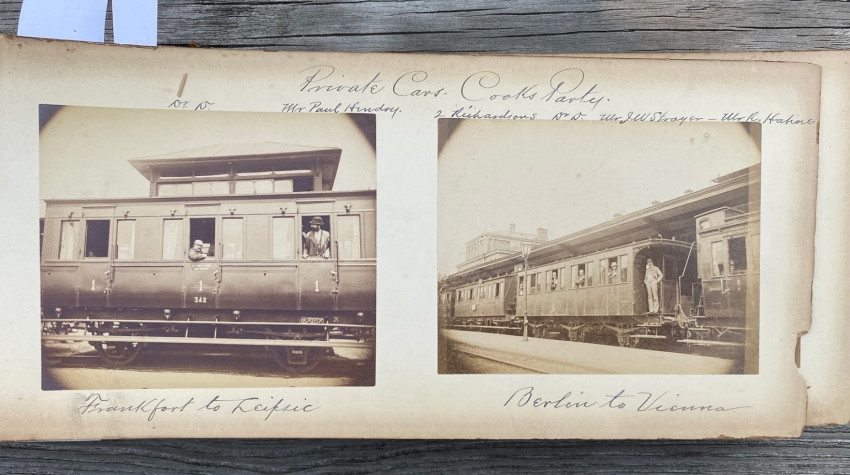 Private Cars. Cooks Party.
Dr D. Mr Paul Hendry.
2 Richardsons Dr D. Mr J W Strayer - Mr R. Hahne
1 1 1
342
Frankfort to Leipsic
Berlin to Vienna